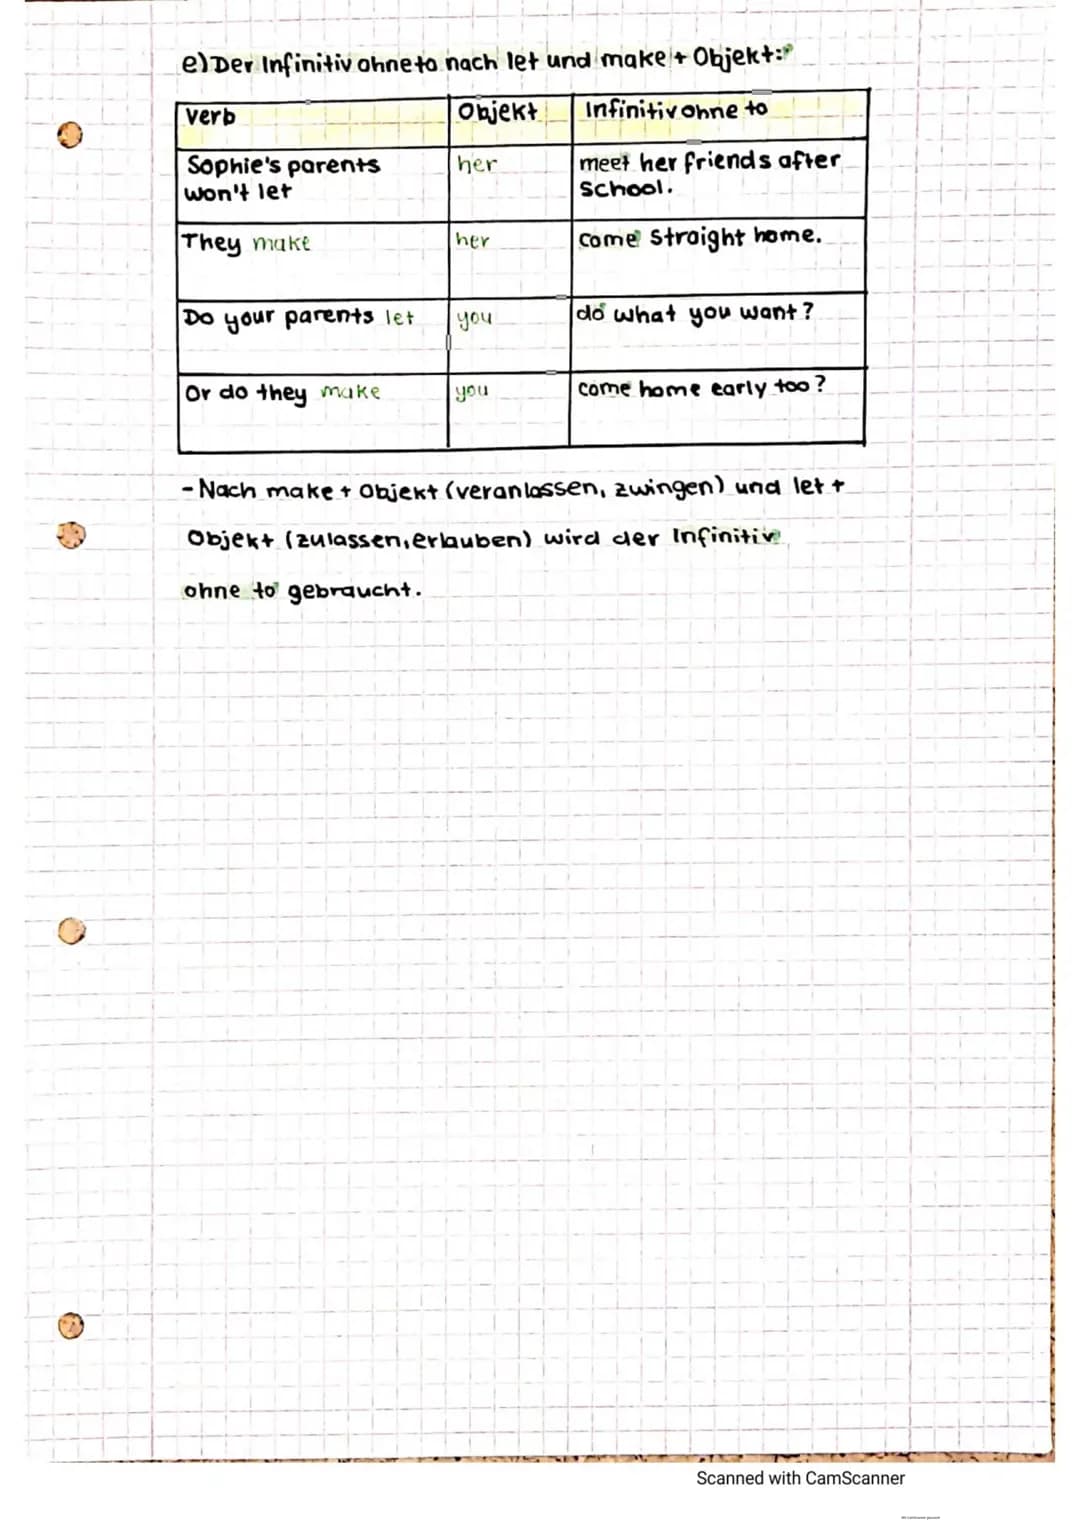 e) Der Infinitiv ohne to nach let und make + Objekt:
Verb Objekt Infinitiv ohne to
Sophie's parents her meet her friends after
won't let school.
They make her come straight home.
Do your parents let you do what you want?
Or do they make you come home early too?
- Nach make + Objekt (veranlassen, zwingen) und let +
Objekt (zulassen, erlauben) wird der Infinitiv
ohne to gebraucht.
Scanned with CamScanner